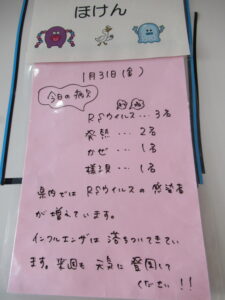 ほけん
1月31日(金)
今日の病欠
RSウイルス…3名
発熱…2名
かぜ…1名
様子見…1名
県内ではRSウイルスの感染者
が増えています。
インフルエンザは落ちついてきてい
ます。来週も元気に登園して
ください!!